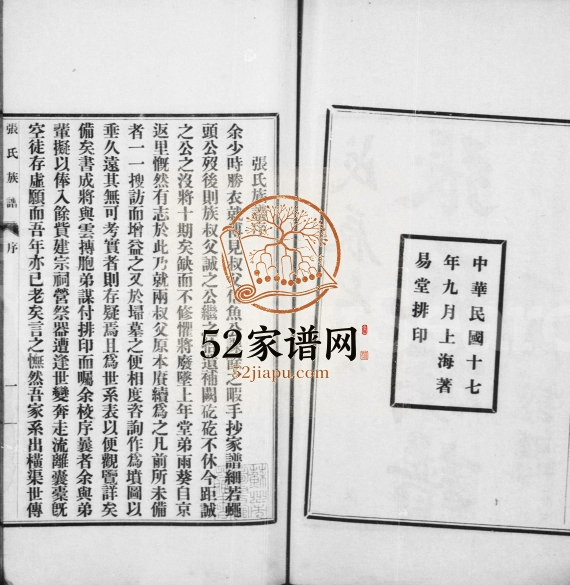 中華民國十七
年九月上海著
易堂排印
張氏族譜序
余少時勝衣就 見叔父 魚 之暇手抄家譜細若蠅
頭公歿後則族叔父誠之公繼之 遺補闕矻矻不休今距誠
之公之沒將十期矣缺而不修懼將廢墜上年堂弟雨葵自京
返里慨然有志於此乃就兩叔父原本賡續爲之凡前所未備
者一一搜訪而增益之又於埽墓之便相度咨詢作爲墳圖以
垂久遠其無可考實者則存疑焉且爲世系表以便觀覽詳矣
備矣書成將與雲摶胞弟謀付排印而囑余校序曩者余與弟
輩擬以俸入餘貲建宗祠營祭器遭逢世變奔走流離囊橐旣
空徒存虛願而吾年亦已老矣言之憮然吾家系出橫渠世傳
張氏族譜 序 一
52家谱网
52jiapu.com